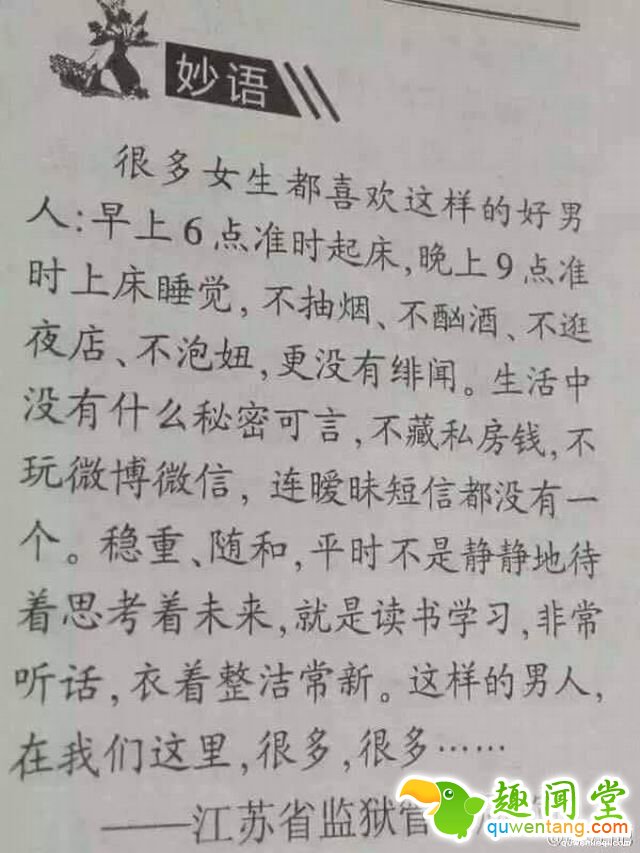 妙语
很多女生都喜欢这样的好男
人:早上6点准时起床,晚上9点准
时上床睡觉,不抽烟、不酗酒、不逛
夜店、不泡妞,更没有绯闻。生活中
没有什么秘密可言,不藏私房钱,不
玩微博微信,连暧昧短信都没有一
个。稳重、随和,平时不是静静地待
着思考着未来,就是读书学习,非常
听话,衣着整洁常新。这样的男人,
在我们这里,很多,很多……
——江苏省监狱管
趣闻堂
quwentang.com